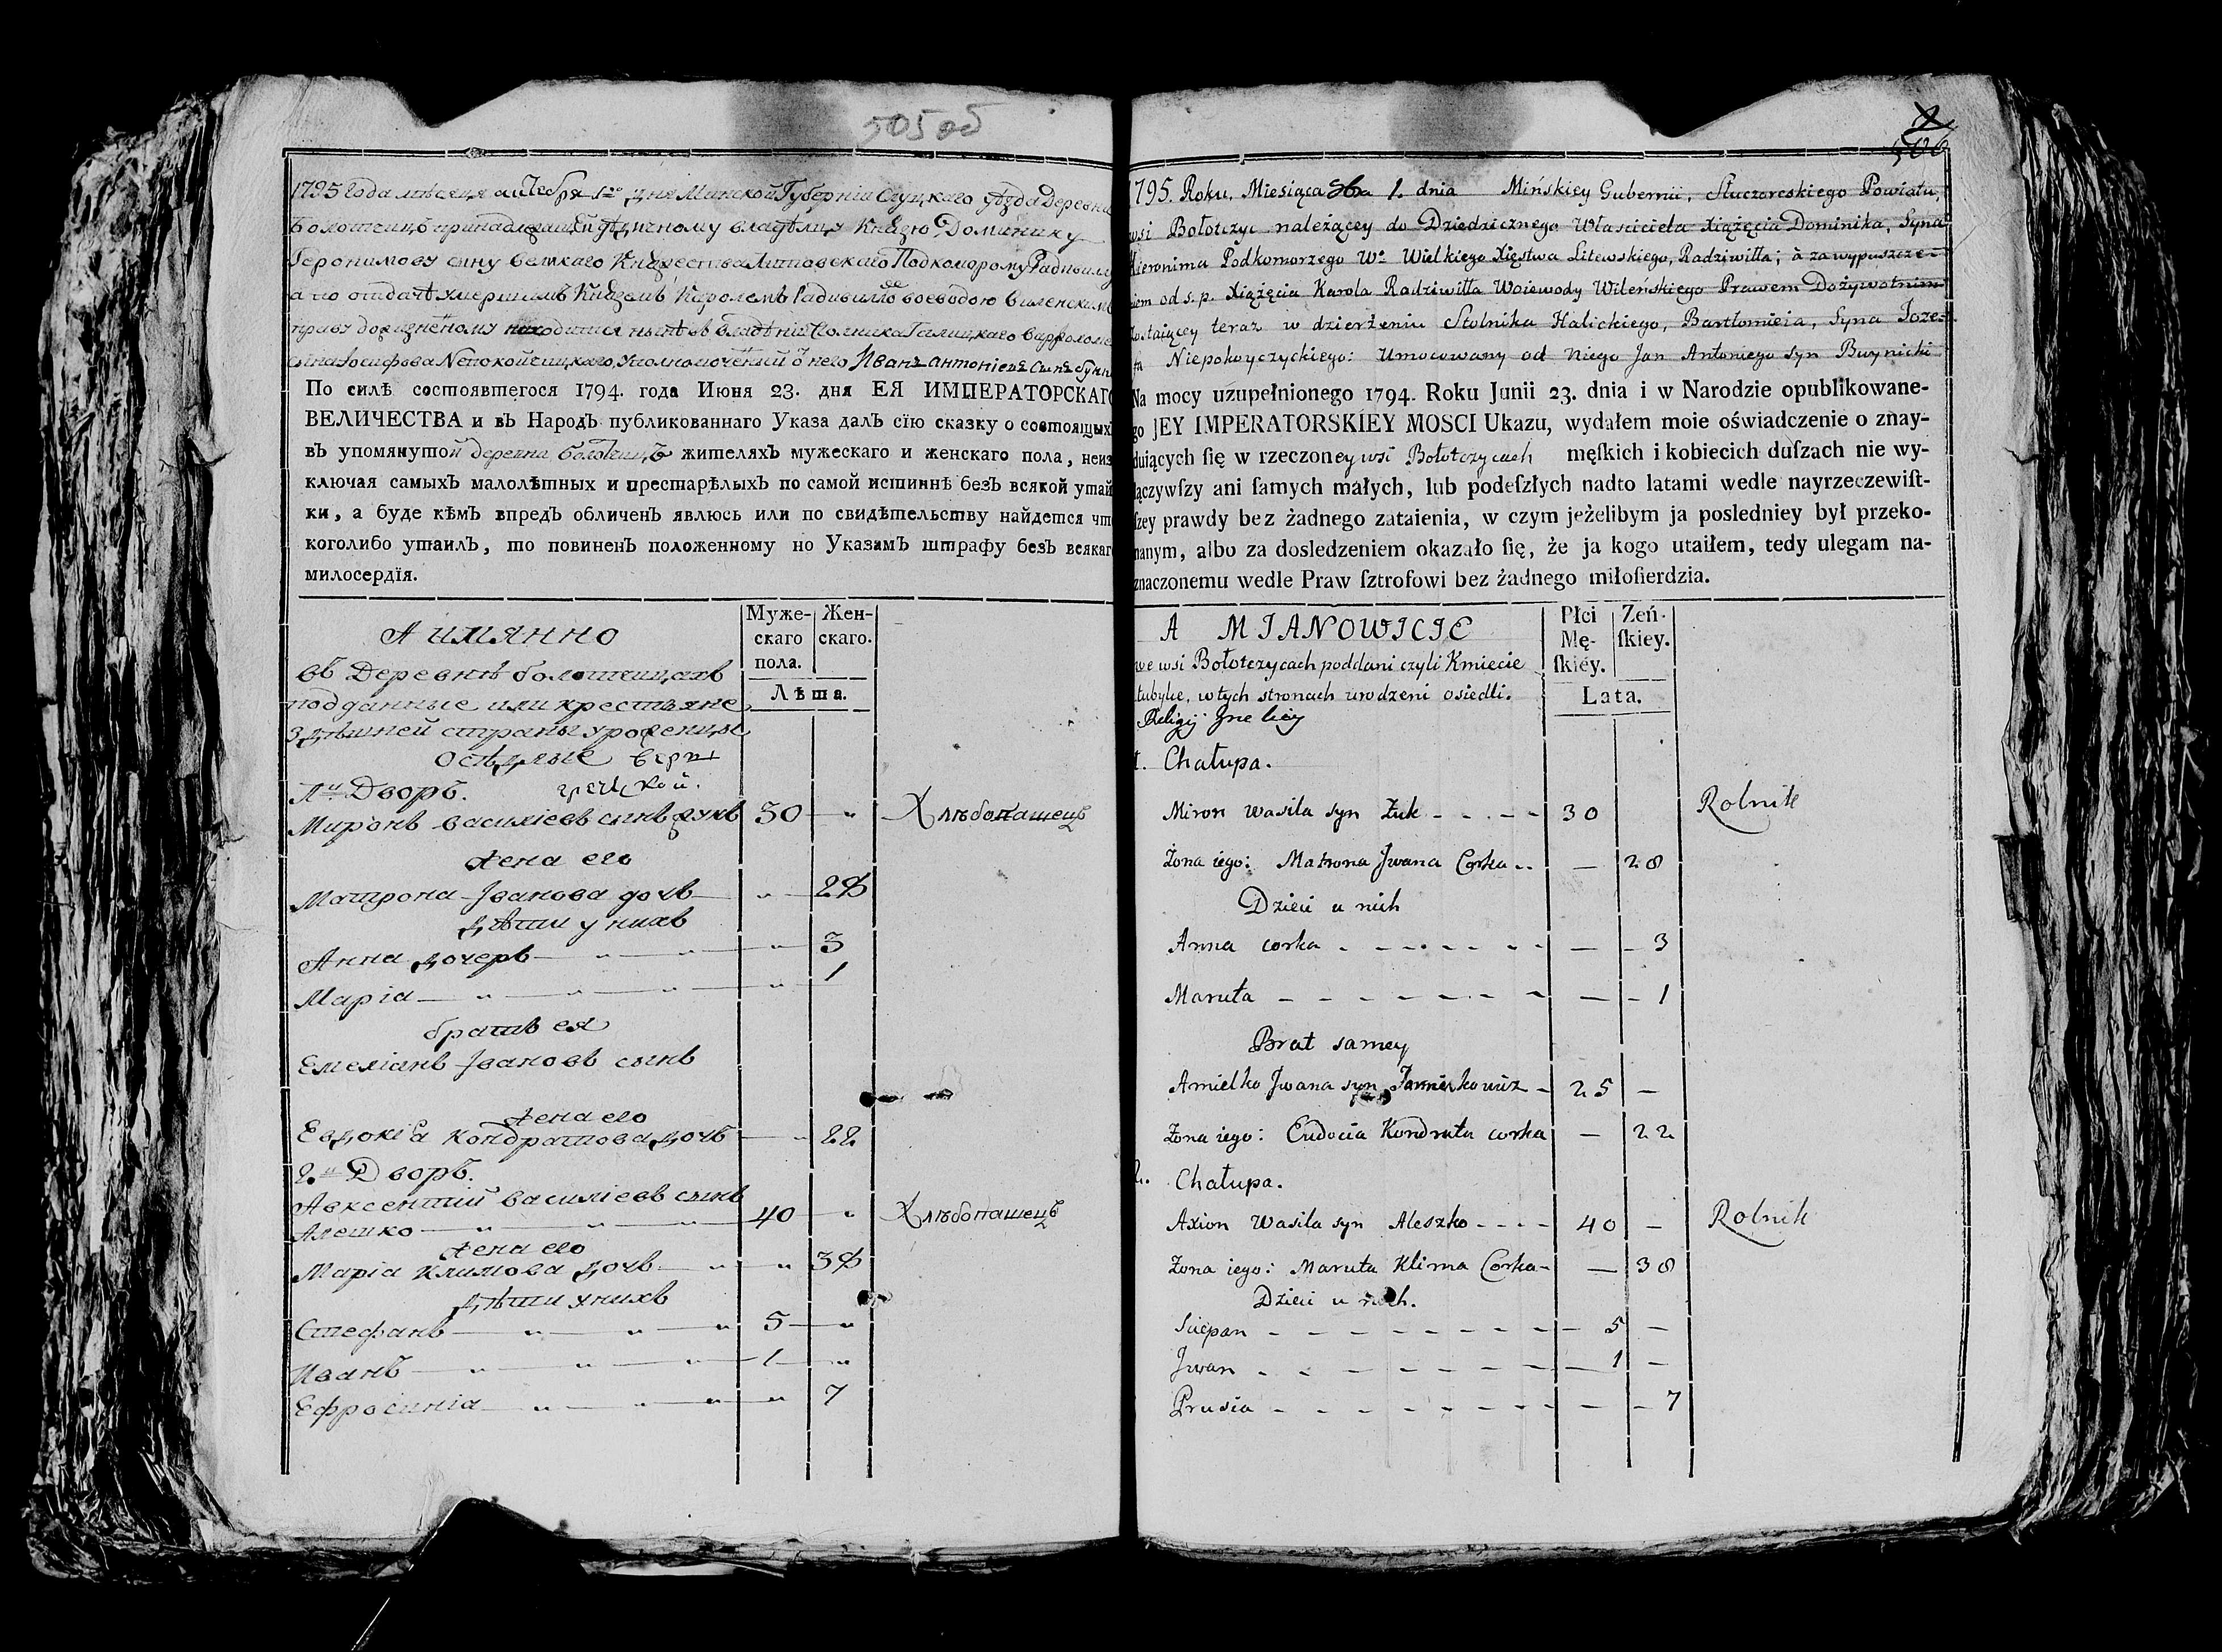 505 об
1795 года мѣсяца 1го дня Минской Губерніи Слуцкаго уѣзда Деревни
Болотчицъ принадлежащей дѣдичному владѣлцу Князю Доминику
Геронимову сыну великаго Княжества Литовскаго Подкоморому Радивиллу
а по отдачѣ умершимъ Княземъ Кароломъ Радивилломъ воеводою виленскимъ
праву находится нынѣ въ владѣніи Столника Галицкаго
сына Іосифова Непокойчицкаго, уполномоченный Иванъ Антоніевъ сынъ
По силѣ состоявтегося 1794. года Июня 23. дня ЕЯ ИМПЕРАТОРСКАГО
ВЕЛИЧЕСТВА и въ Народъ публикованнаго Указа далъ сїю сказку о состоящыхъ
въ упомянутой деревна болотчицъ жителяхъ мужескаго и женскаго пола, неиз
ключая самыхъ малолѣтныхъ и престарѣлыхъ по самой истиннѣ безъ всякой утай
ки, а буде кѣмъ впредъ обличенъ явлюсь или по свидѣтельству найдется что
коголибо утаилъ, то повиненъ положенному но Указамъ штрафу безъ всякаго
милосердїя.
А имянно
Муже-
скаго
пола.
Жен-
скаго.
Лѣта.
въ Деревнѣ болотчицахъ
подданные или крестьяне
здѣшней страны уроженцы
осѣдлые веры
греческой.
1й Дворъ.
Миронъ василіевъ сынъ жукъ 30 — „ Хлѣбопашецъ
жена его
Матрона Іванова дочь — „ 28
дѣти у нихъ
Анна дочерь — „ — „ — „ 3
Маріа — „ — „ — „ — „ 1
братъ ея
Емеліанъ Івановъ сынъ
жена его
Евдокіа Кондратова дочь — „ 22
2й Дворъ.
Авксентий василіевъ сынъ
Алешко — „ — „ — „ 40 — „ Хлѣбопашецъ
жена его
Маріа Климова дочь — „ „ 38
дѣти у нихъ
Стефанъ — „ — „ — „ 5 — „
Иванъ — „ — „ — „ 1 — „
Ефросиніа — „ — „ — „ „ 7
506
1795. Roku, Miesiąca 8bra 1. dnia Mińskiey Gubernii, Słuczoreskiego Powiatu,
wsi Bołotczyc należącey do Dziedzicznego Właściciela Xiążęcia Dominika, Syna
Hieronima Podkomorzego Wo Wielkiego Xięstwa Litewskiego, Radziwiłła; à za wypuszcze-
niem od s. p. Xiążęcia Karola Radziwiłła Woiewody Wileńskiego Prawem Dożywotnim
zostaiącey teraz w dzierżeniu Stolnika Halickiego, Bartłomieia, Syna Joze-
fa Niepokoyczyckiego: Umocowany od Niego Jan Antoniego syn Buynicki
Na mocy uzupełnionego 1794. Roku Junii 23. dnia i w Narodzie opublikowane-
go JEY IMPERATORSKIEY MOSCI Ukazu, wydałem moie oświadczenie o znay-
duiących ſię w rzeczoney wsi Bołotczycach męſkich i kobiecich duſzach nie wy-
łączywſzy ani ſamych małych, lub podeſzłych nadto latami wedle nayrzeczewiſt-
ſzey prawdy bez żadnego zataienia, w czym jeżelibym ja posledniey był przeko-
nanym, albo za dosledzeniem okazało ſię, że ja kogo utaiłem, tedy ulegam na-
znaczonemu wedle Praw ſztrofowi bez żadnego miłoſierdzia.
A MIANOWICIE
Płci
Mę-
ſkiéy.
Zeń-
ſkiey.
Lata.
we wsi Bołotczycach poddani czyli Kmiecie
tubylce, w tych stronach urodzeni osiedli.
Religij
1. Chałupa.
Miron Wasila syn Żuk - - - - 30 Rolnik
Żona iego: Matrona Jwana Corka - - — 28
Dzieci u nich
Anna corka - - - - - - — - 3
Maruta - - - - - - - — - 1
Brat samey
Amielko Jwana syn - 25 —
Żona iego: Eudocia Kondrata corka — 22
2. Chałupa.
Axion Wasila syn Aleszko - - - - 40 — Rolnik
Żona iego: Maruta Klima Corka - — 38
Dzieci u nich.
Sciepan - - - - - - - - 5 —
Jwan - - - - - - - - 1 —
Prusia - - - - - - - - — - 7